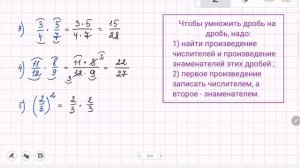 2
3) 3/4 · 5/7 = 3·5/4·7 = 15/28
4) 11/12 · 8/9 = 11·8/12·9 = 22/27
3
2
5) (2/3)² = 2/3 · 2/3
Чтобы умножить дробь на
дробь, надо:
1) найти произведение
числителей и произведение
знаменателей этих дробей ;
2) первое произведение
записать числителем, а
второе - знаменателем.